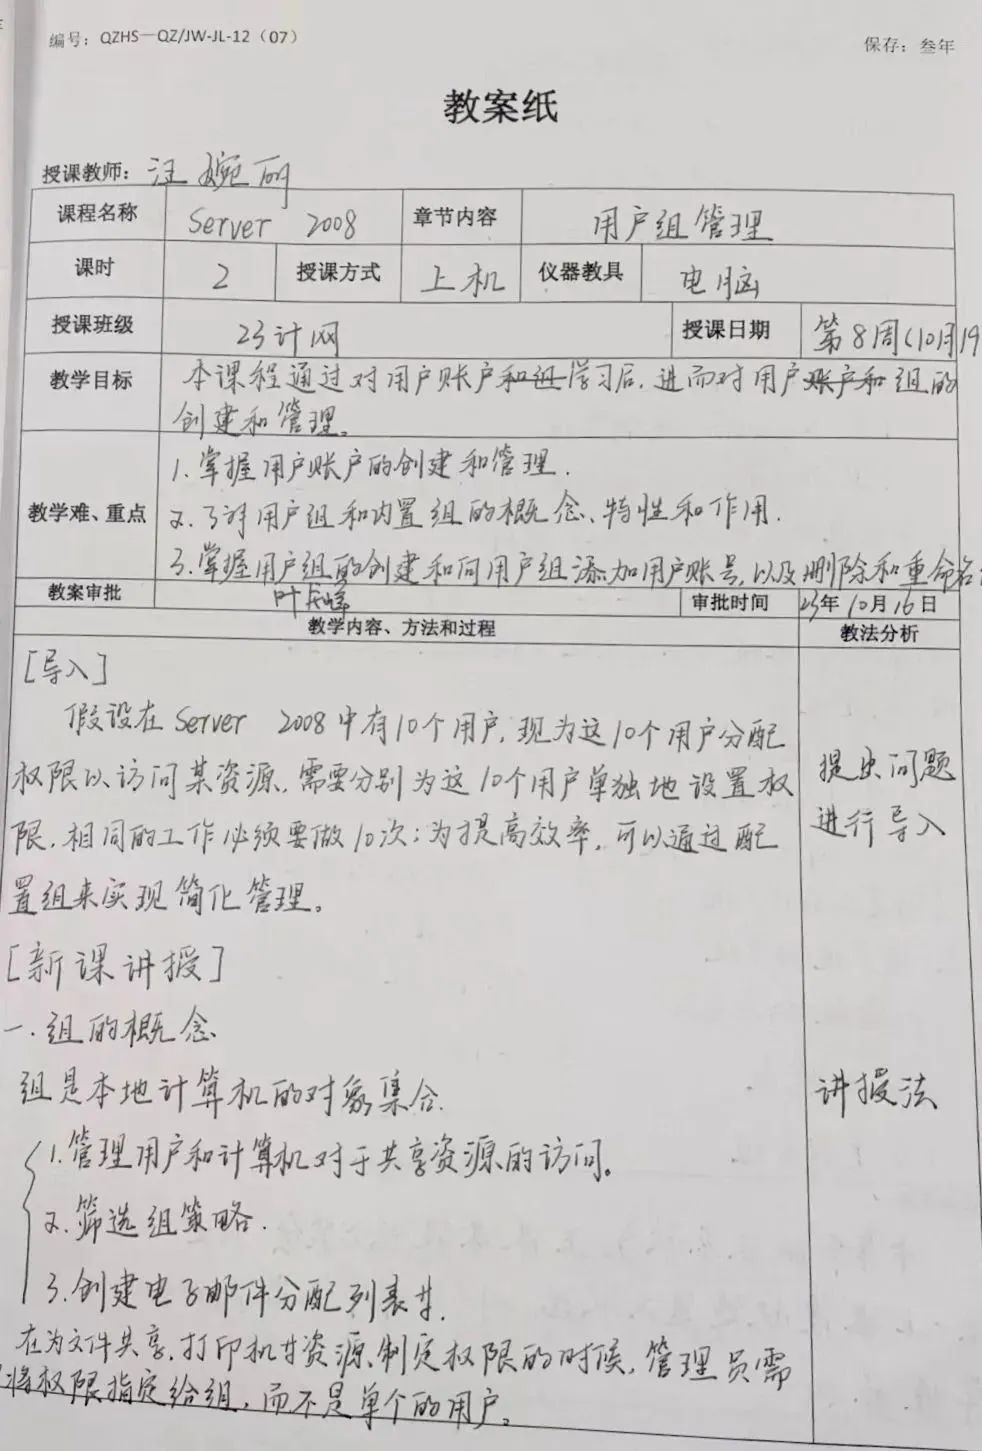 编号：QZHS—QZ/JW-JL-12（07）
保存：叁年
教案纸
授课教师：汪婉丽
课程名称 Server 2008 章节内容 用户组管理
课时 2 授课方式 上机 仪器教具 电脑
授课班级 23计网 授课日期 第8周(10月19
教学目标 本课程通过对用户账户和组学习后,进而对用户账户和组的
创建和管理。
教学难、重点
1.掌握用户账户的创建和管理.
2.了解用户组和内置组的概念、特性和作用.
3.掌握用户组的创建和向用户组添加用户账号,以及删除和重命名
教案审批 叶 审批时间 23年10月16日
教学内容、方法和过程 教法分析
[导入]
假设在Server 2008中有10个用户,现为这10个用户分配
权限以访问某资源,需要分别为这10个用户单独地设置权
限,相同的工作必须要做10次;为提高效率,可以通过配
置组来实现简化管理。
提出问题
进行导入
[新课讲授]
一.组的概念
组是本地计算机的对象集合.
讲授法
1.管理用户和计算机对于共享资源的访问。
2.筛选组策略.
3.创建电子邮件分配列表等.
在为文件共享,打印机等资源,制定权限的时候,管理员需
将权限指定给组,而不是单个的用户。